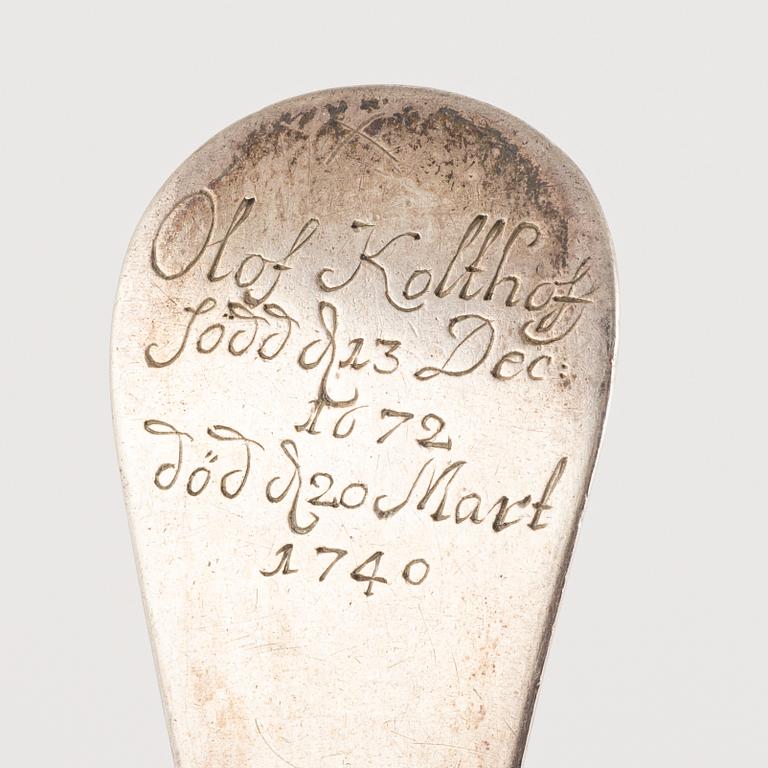 Olof Kolthoff
född d 13 Dec:
1672
död d 20 Mart
1740